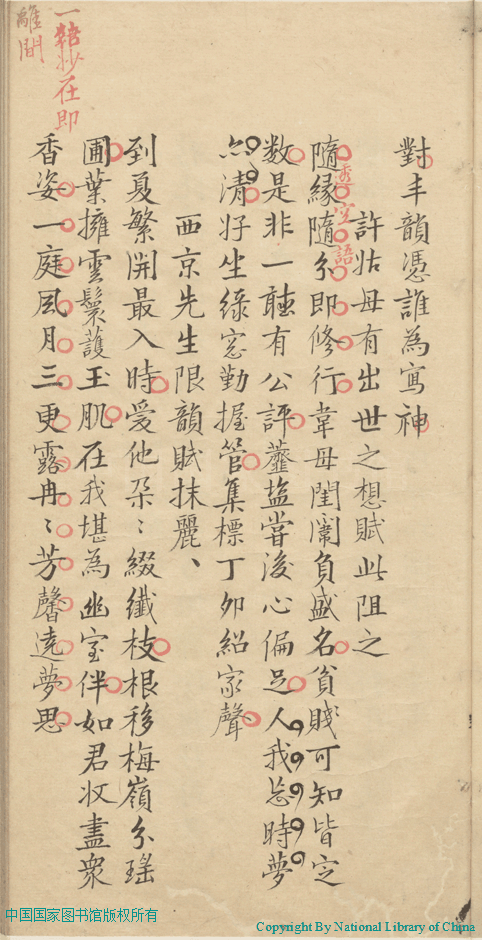 對丰韻憑誰為寫神
許姑母有出世之想賦此阻之
隨緣隨分即修行韋母閨闈負盛名貧賤可知皆定
数是非一聽有公評虀盐嘗後心偏足人我忘時夢
亦清好坐緑窓勤握管集標丁卯紹家聲
西京先生限韻賦抹麗、
到夏繁開最入時愛他朶〻綴纖枝根移梅嶺分瑤
圃葉擁雲鬟護玉肌在我堪為幽室伴如君妝盡衆
香姿一庭風月三更露冉〻芳馨遶夢思
一結妙在即
離間
中国国家图书馆版权所有
Copyright By National Library of China